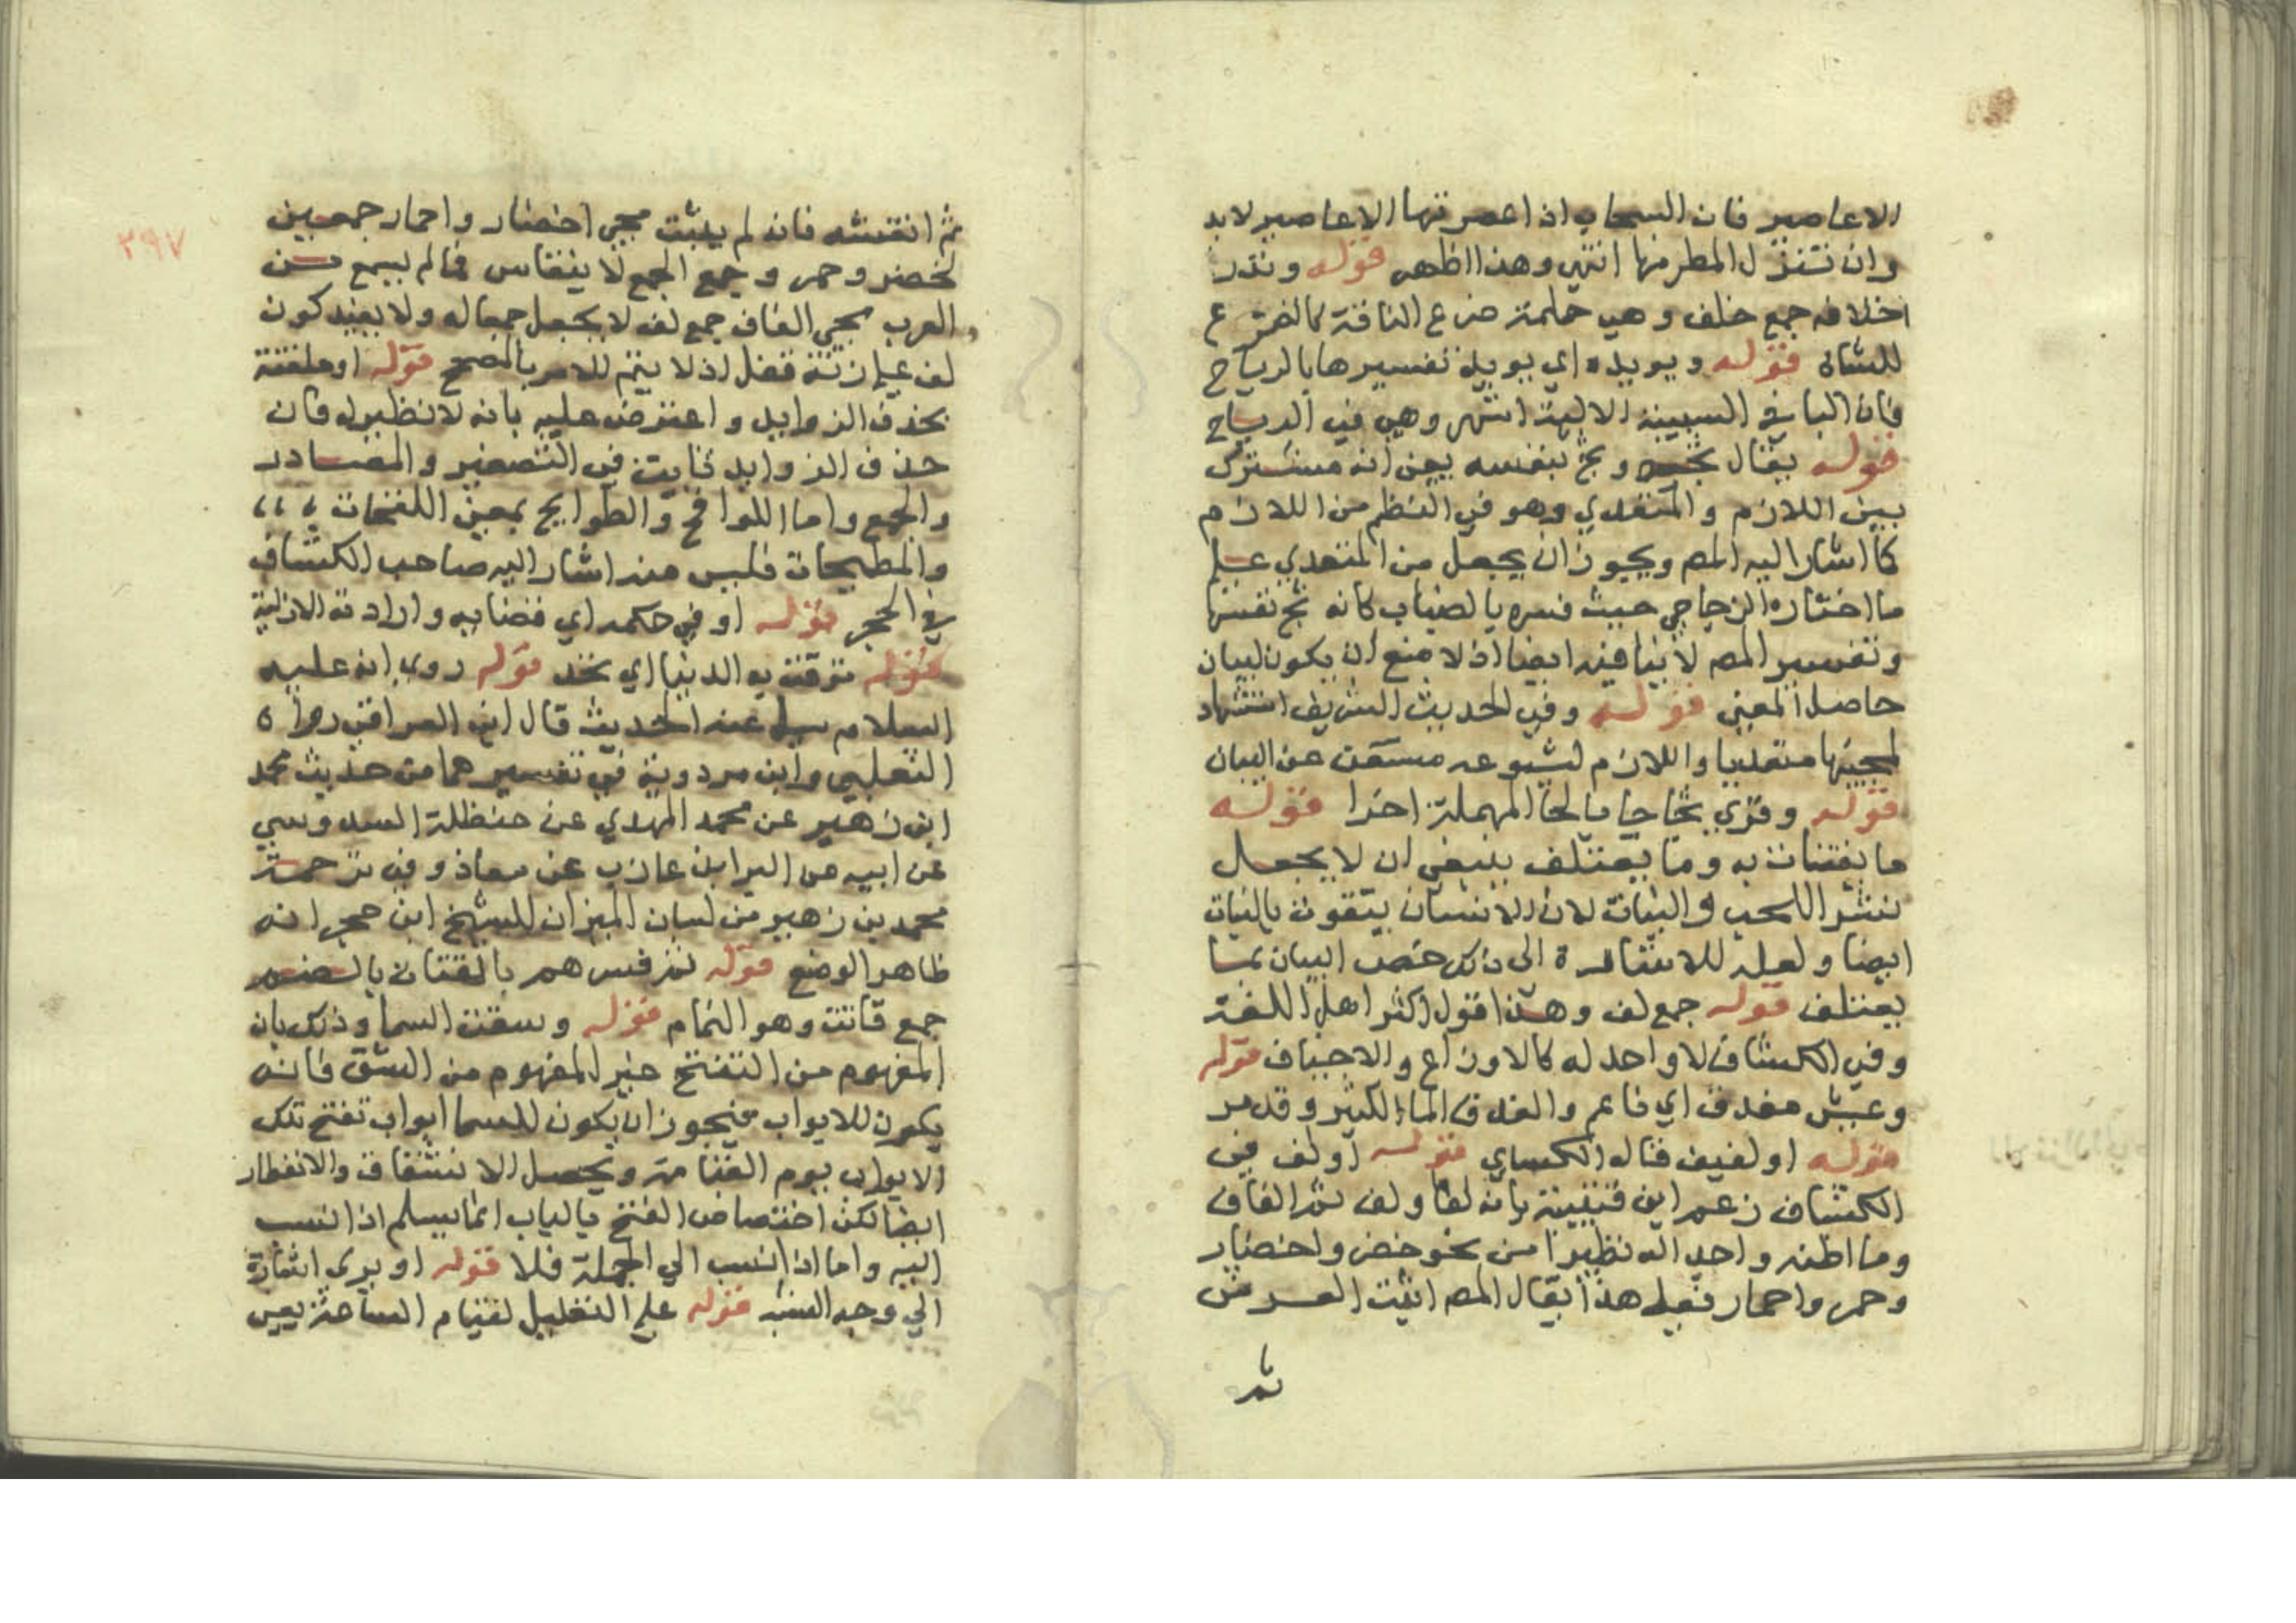 الاعاصير فان السحاب اذا عصرتها الاعاصير لابد
وان تنزل المطر منها انتهى وهذا اظهر قوله وتدر
اخلافه جمع خلف وهي حلمة ضرع الناقة كالضرع
للشاة قوله ويويده اي يويد تفسيرها بالرياح
فان البا في السببية الالية اشهر وهي في الرياح
قوله يقال ثجه وثج بنفسه يعني انه مشترك
بين اللازم والمتعدي وهو في النظم من اللازم
كما اشار اليه المص ويجوز ان يجعل من المتعدي على
ما اختاره الزجاجي حيث فسره بالصباب كانه ثج نفسها
وتفسير المص لا ينافيه ايضا اذ لا منع ان يكون لبيان
حاصل المعنى قوله وفي الحديث الشريف استشهاد
لمجيئها متعديا واللازم لشيوعه مستغن عن البيان
قوله وقري ثجاجا بالحا المهملة اخرا قوله
ما يقتات به وما يعتلف ينبغي ان لا يجعل
نشر اللحب والنبات لان الانسان يتقوت بالنبات
ايضا ولعله للاشارة الى ذلك خصب البيان بما
يعتلف قوله جمع لف وهذا قول اكثر اهل اللغة
وفي الكشاف لا واحد له كالاوزاع والاخياف قوله
وعيش مغدق اي ناعم والغدق الماء الكثير وقد مر
قوله او لفيف قاله الكساي قوله او لف في
الكشاف زعم ابن قتيبة بانه لفا ولف ثم الفاف
وما اظنه واجدا له نظيرا من نحو خضر واخضار
وحمر واحمار فعلى هذا يقال المص اثبت العرش
ثم
٣٩٧
ثم انقشه فانه لم يثبت مجي اخضار واحمار جمعين
لخضر وحمر وجمع الجمع لا ينقاس فما لم يسمع من
العرب مجي الفاف جمع لف لا يجعل جمعا له ولا يفيد كون
لف على زنة قفل اذ لا يتم للامر بالمصحح قوله او ملتفة
بحذف الزوايد واعترض عليه بانه لا نظير له فان
حذف الزوايد ثابت في التصغير والمصادر
والجمع واما اللواقح والطوايح بمعنى اللقحات
والمطيحات فليس منه اشار اليه صاحب الكشاف
في الحجر قوله او في حكمه اي قضايه وارادته الازلية
قوله توقت به الدنيا اي تحد قوله روي انه عليه
السلام سيل عنه الحديث قال ابن العراقي رواه
الثعلبي وابن مردوية في تفسيرهما من حديث محمد
ابن زهير عن محمد المهدي عن حنظلة السدوسي
عن ابيه عن البرا بن عازب عن معاذ وفي ترجمة
محمد بن زهير من لسان الميزان للشيخ ابن حجر انه
ظاهر الوضع قوله ثم فسرهم بالقتات بالضم
جمع قاتت وهو النمام قوله وسقت السما وذلك بان
المفهوم من التفتح غير المفهوم من الشق فانه
يكون للابواب فيجوز ان يكون للسما ابواب تفتح تلك
الابواب يوم القيامة ويحصل الانشقاق والانفطار
ايضا لكن اختصاص الفتح بالباب انما يسلم اذا نسب
اليه واما اذا نسب الي الجملة فلا قوله او يرى اشارة
الي وجه الشبه قوله على التعليل لقيام الساعة يعني